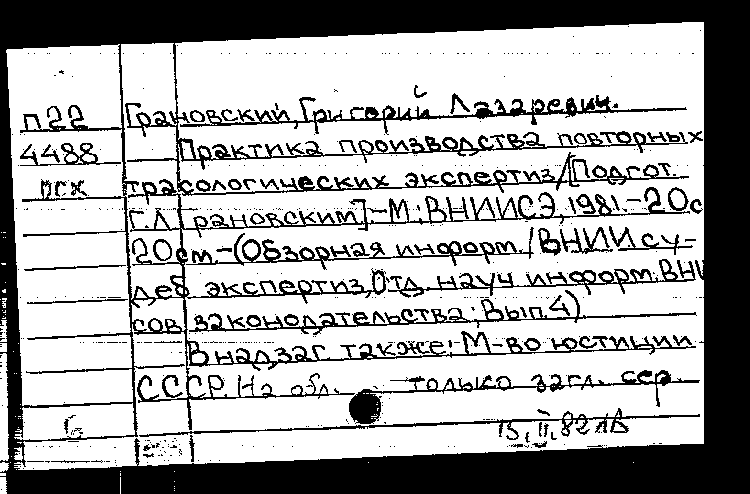 п22 Грановский, Григорий Лазаревич.
4488 Практика производства повторных
псх трасологических экспертиз/[Подгот.
Г.Л.Грановским].-М.:ВНИИСЭ,1981.-20с
20см.-(Обзорная информ./ВНИИ су-
деб экспертиз,Отд. науч информ.ВНИ
сов. законодательства; Вып.4)
В надзаг. также: М-во юстиции
СССР. На обл. только загл. сер.
15.II.82